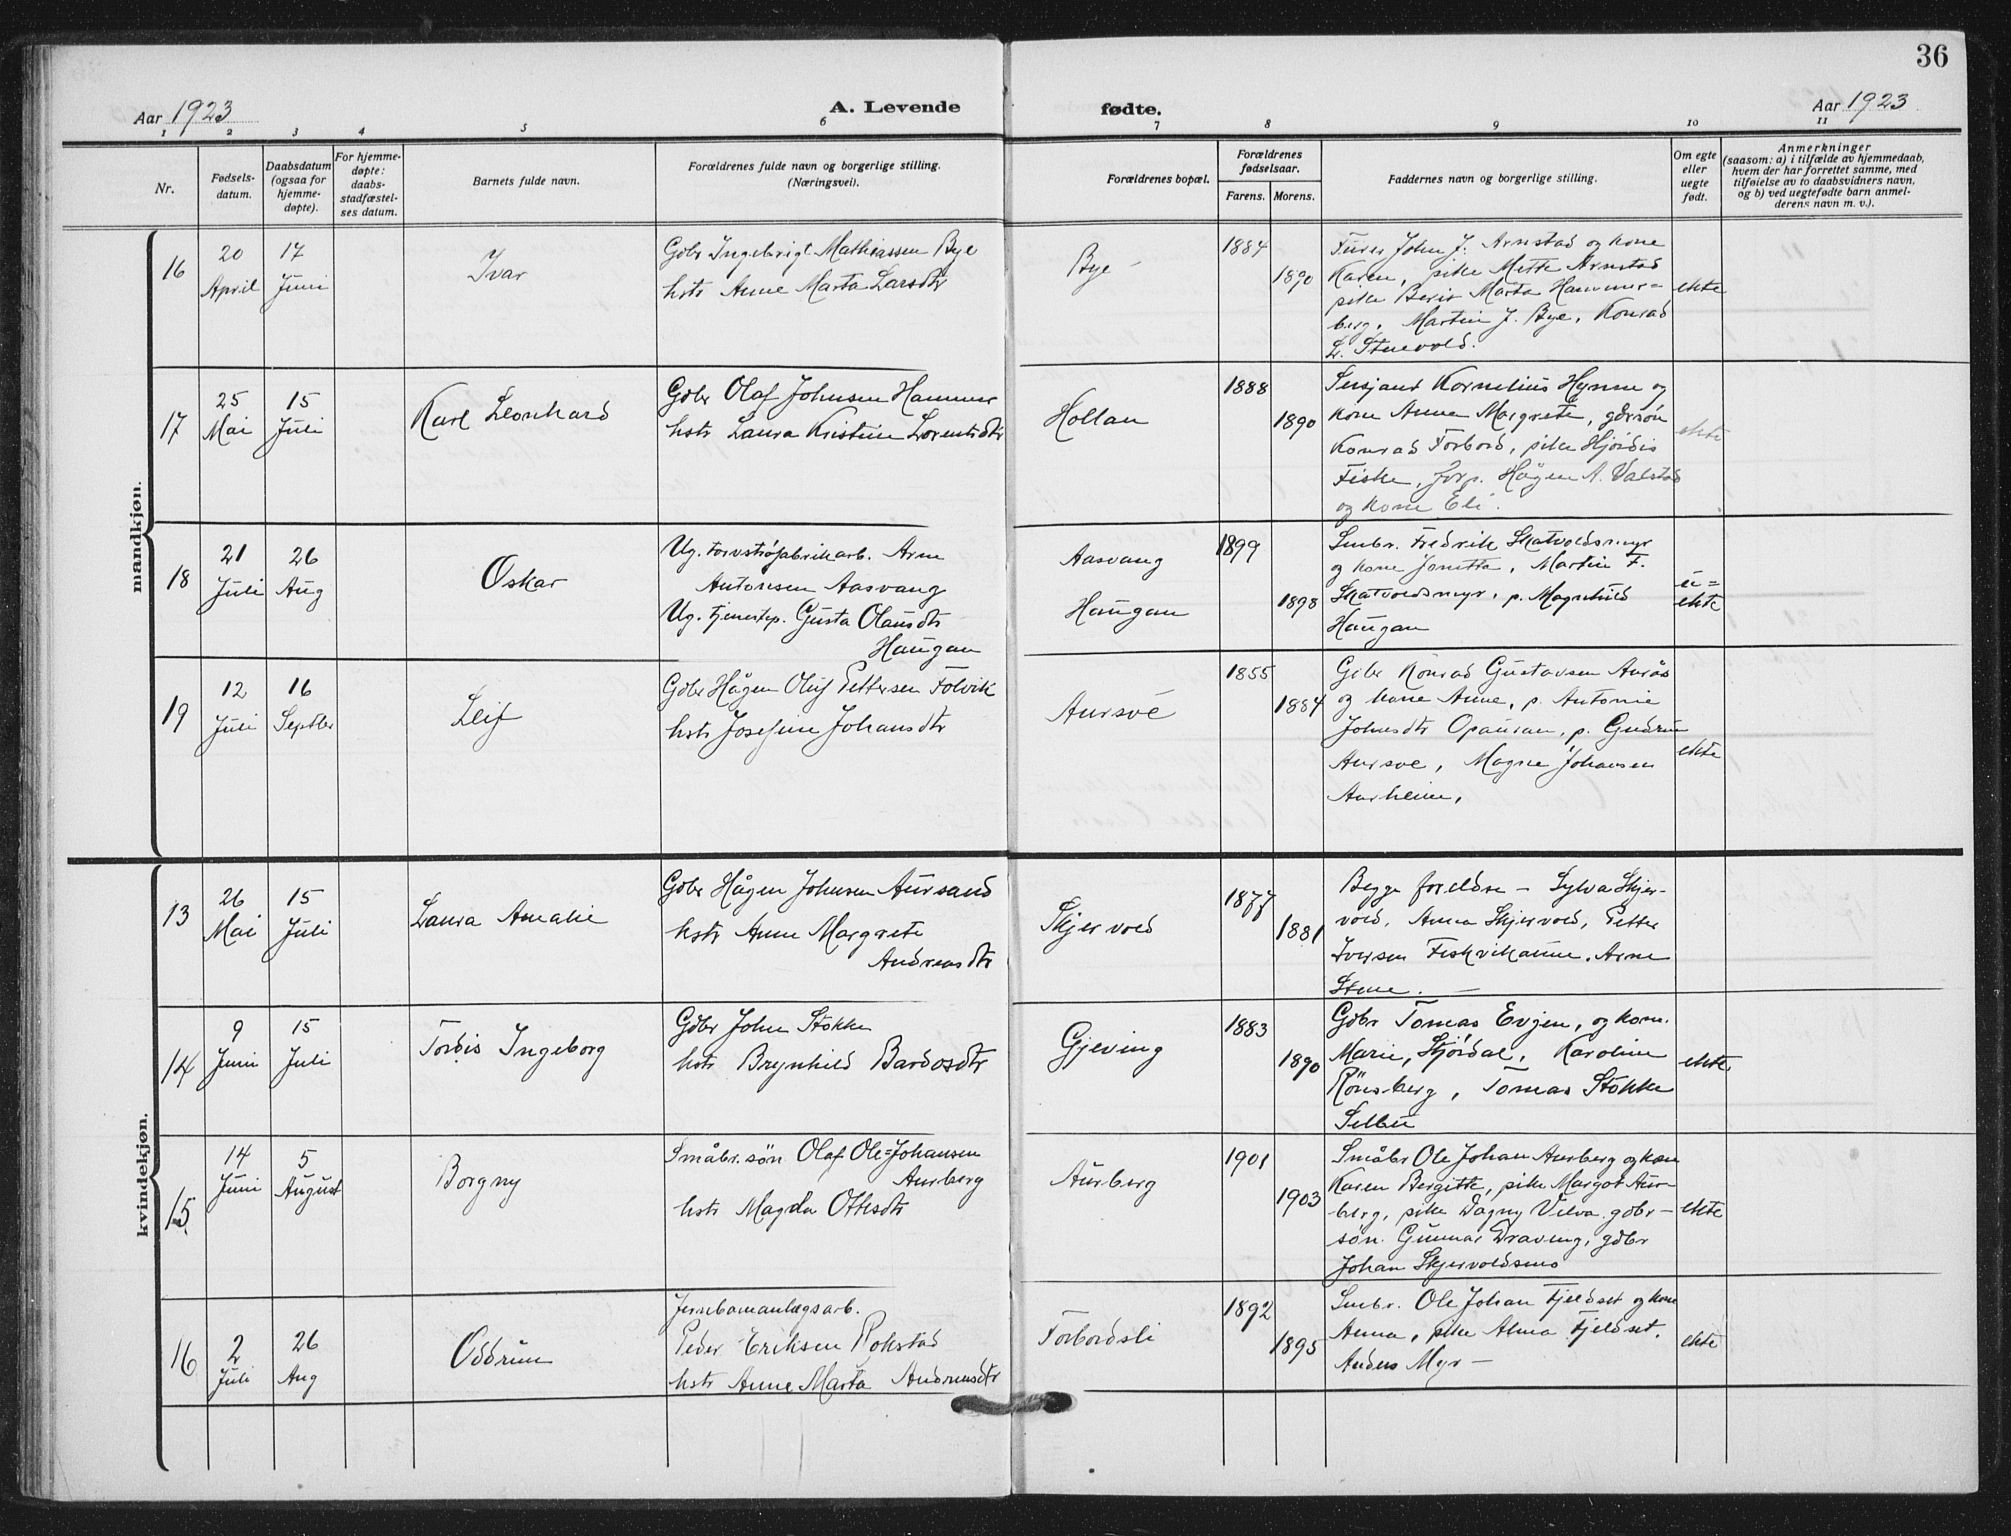 36
Aar 1923
A. Levende fødte.
Aar 1923
1 2 3 4 5 6 7 8 9 10 11
Nr.
Fødsels-
datum.
Daabsdatum
(ogsaa for
hjemme-
døpte).
For hjemme-
døpte:
daabs-
stadfæstel-
ses datum.
Barnets fulde navn.
Forældrenes fulde navn og borgerlige stilling.
(Næringsvei).
Forældrenes bopæl.
Forældrenes
fødselsaar.
Farens. Morens.
Faddernes navn og borgerlige stilling.
Om egte
eller
uegte
født.
Anmerkninger
(saasom: a) i tilfælde av hjemmedaab,
hvem der har forrettet samme, med
tilføielse av to daabsvidners navn,
og b) ved uegtefødte barn anmel-
derens navn m. v.).
mandkjøn.
16
20
April
17
Juni
Ivar
Gdbr Ingebrigt Mathiassen Bye
hstr Anne Marta Larsdtr
Bye
1884
1890
John J. Arnstad og kone
Karen, pike Mette Arnstad
pike Berit Marta Hammer=
berg, Martin J. Bye, Konrad
L. Stuevold.
ekte
17
25
Mai
15
Juli
Karl Leonhard
Gdbr Olaf Johnsen Hammer
hstr Laura Kristine Lorentsdtr
Hollan
1888
1890
Sersjant Kornelius Hynne og
kone Anna Margrete, gdrsøn
Konrad Forbord, pike Hjørdis
Fiske, forp. Hågen A. Valstad
og kone Eli.
ekte
18
21
Juli
26
Aug
Oskar
Ug. torvstrøfabrikarb. Arne
Antonsen Aasvang
Ug. tjenestep. Gusta Olausdtr
Haugan
Aasvang
Haugan
1899
1898
Smbr. Fredrik Skatvoldsmyr
og kone Jonetta, Martin F.
Skatvoldsmyr, p. Magnhild
Haugan
u=
ekte
19
12
Juli
16
Septbr
Leif
Gdbr Hågen Oluf Pettersen Folvik
hstr Josefine Johansdtr
Aursve
1855
1884
Gdbr Konrad Gustavsen Aurås
og kone Anne, p. Antonie
Johnsdtr Opauran, p. Gudrun
Aursve, Magne Johansen
Aurheim,
ekte
kvindekjøn.
13
26
Mai
15
Juli
Laura Amalie
Gdbr Hågen Johnsen Aursand
hstr Anne Margrete
Andreasdtr
Skjervold
1877
1881
Begge foreldre – Sylva Skjer-
vold, Anna Skjervold, Petter
Iversen Fiskvikaune. Arne
Stene. –
14
9
Juni
15
Juli
Tordis Ingeborg
Gdbr John Stokke
hstr Brynhild Bardosdtr
Gjeving
1883
1890
Gdbr Tomas Evjen, og kone
Marie, Stjørdal, Karoline
Rønsberg, Tomas Stokke
Selbu
ekte
15
14
Juni
5
August
Borgny
Småbr.søn Olaf Ole=Johansen
Aurberg
hstr Magda Ottesdtr
Aurberg
1901
1903
Småbr Ole Johan Aurberg og kone
Karen Bergitte, pike Margot Aur-
berg, pike Dagny Velva, gdbr-
søn. Gunnar Draveng, gdbr
Johan Skjervoldsmo
ekte
16
2
Juli
26
Aug
Oddrun
Jernbaneanlægsarb.
Peder Eriksen Rokstad
hstr Anne Marta Andreasdtr
Forbordsli
1892
1895
Smbr. Ole Johan Fjeldset og kone
Anna, pike Alma Fjeldset.
Anders Myr –
ekte